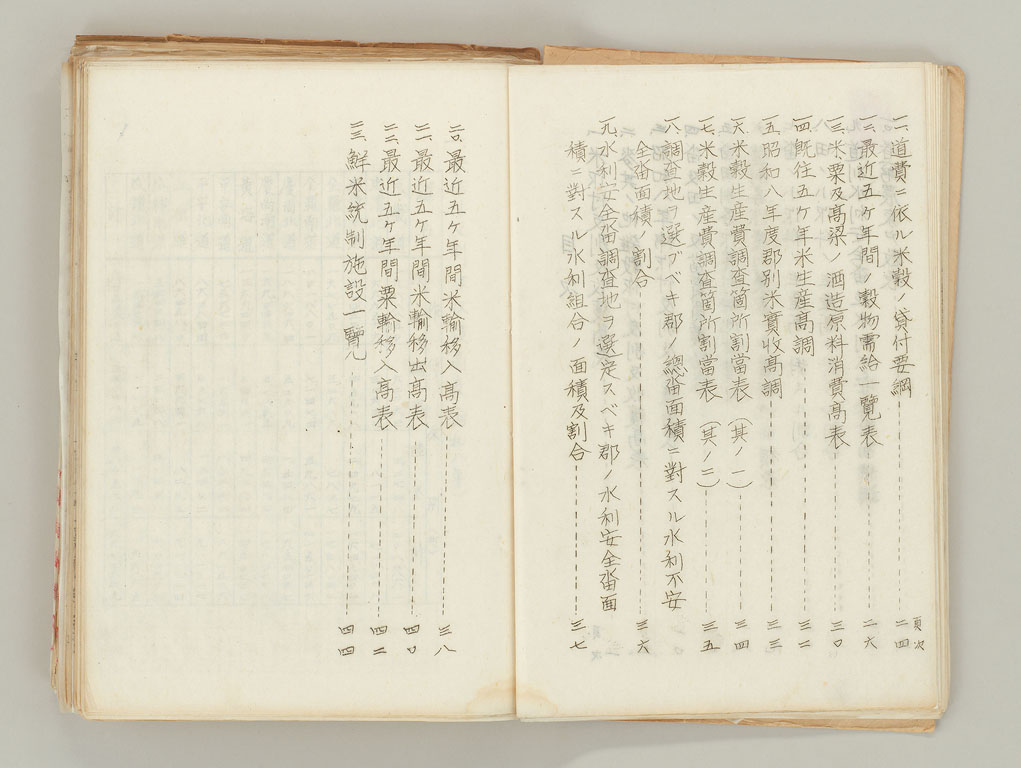 頁次
一一、道費ニ依ル米穀ノ貸付要綱 二四
一二、最近五ケ年間ノ穀物需給一覽表 二六
一三、米粟及高梁ノ酒造原料消費高表 三〇
一四、既往五ケ年米生産高調 三二
一五、昭和八年度郡別米實收高調 三三
一六、米穀生産費調查箇所割當表(其ノ一) 三四
一七、米穀生産費調查箇所割當表(其ノ二) 三五
一八、調查地ヲ選ブベキ郡ノ總畓面積ニ對スル水利不安
全畓面積ノ割合 三六
一九、水利安全畓調查地ヲ選定スベキ郡ノ水利安全畓面
積ニ對スル水利組合ノ面積及割合 三七
二〇、最近五ケ年間米輸移入高表 三八
二一、最近五ケ年間米輸移出高表 四〇
二二、最近五ケ年間粟輸移入高表 四二
二三、鮮米統制施設一覽 四四